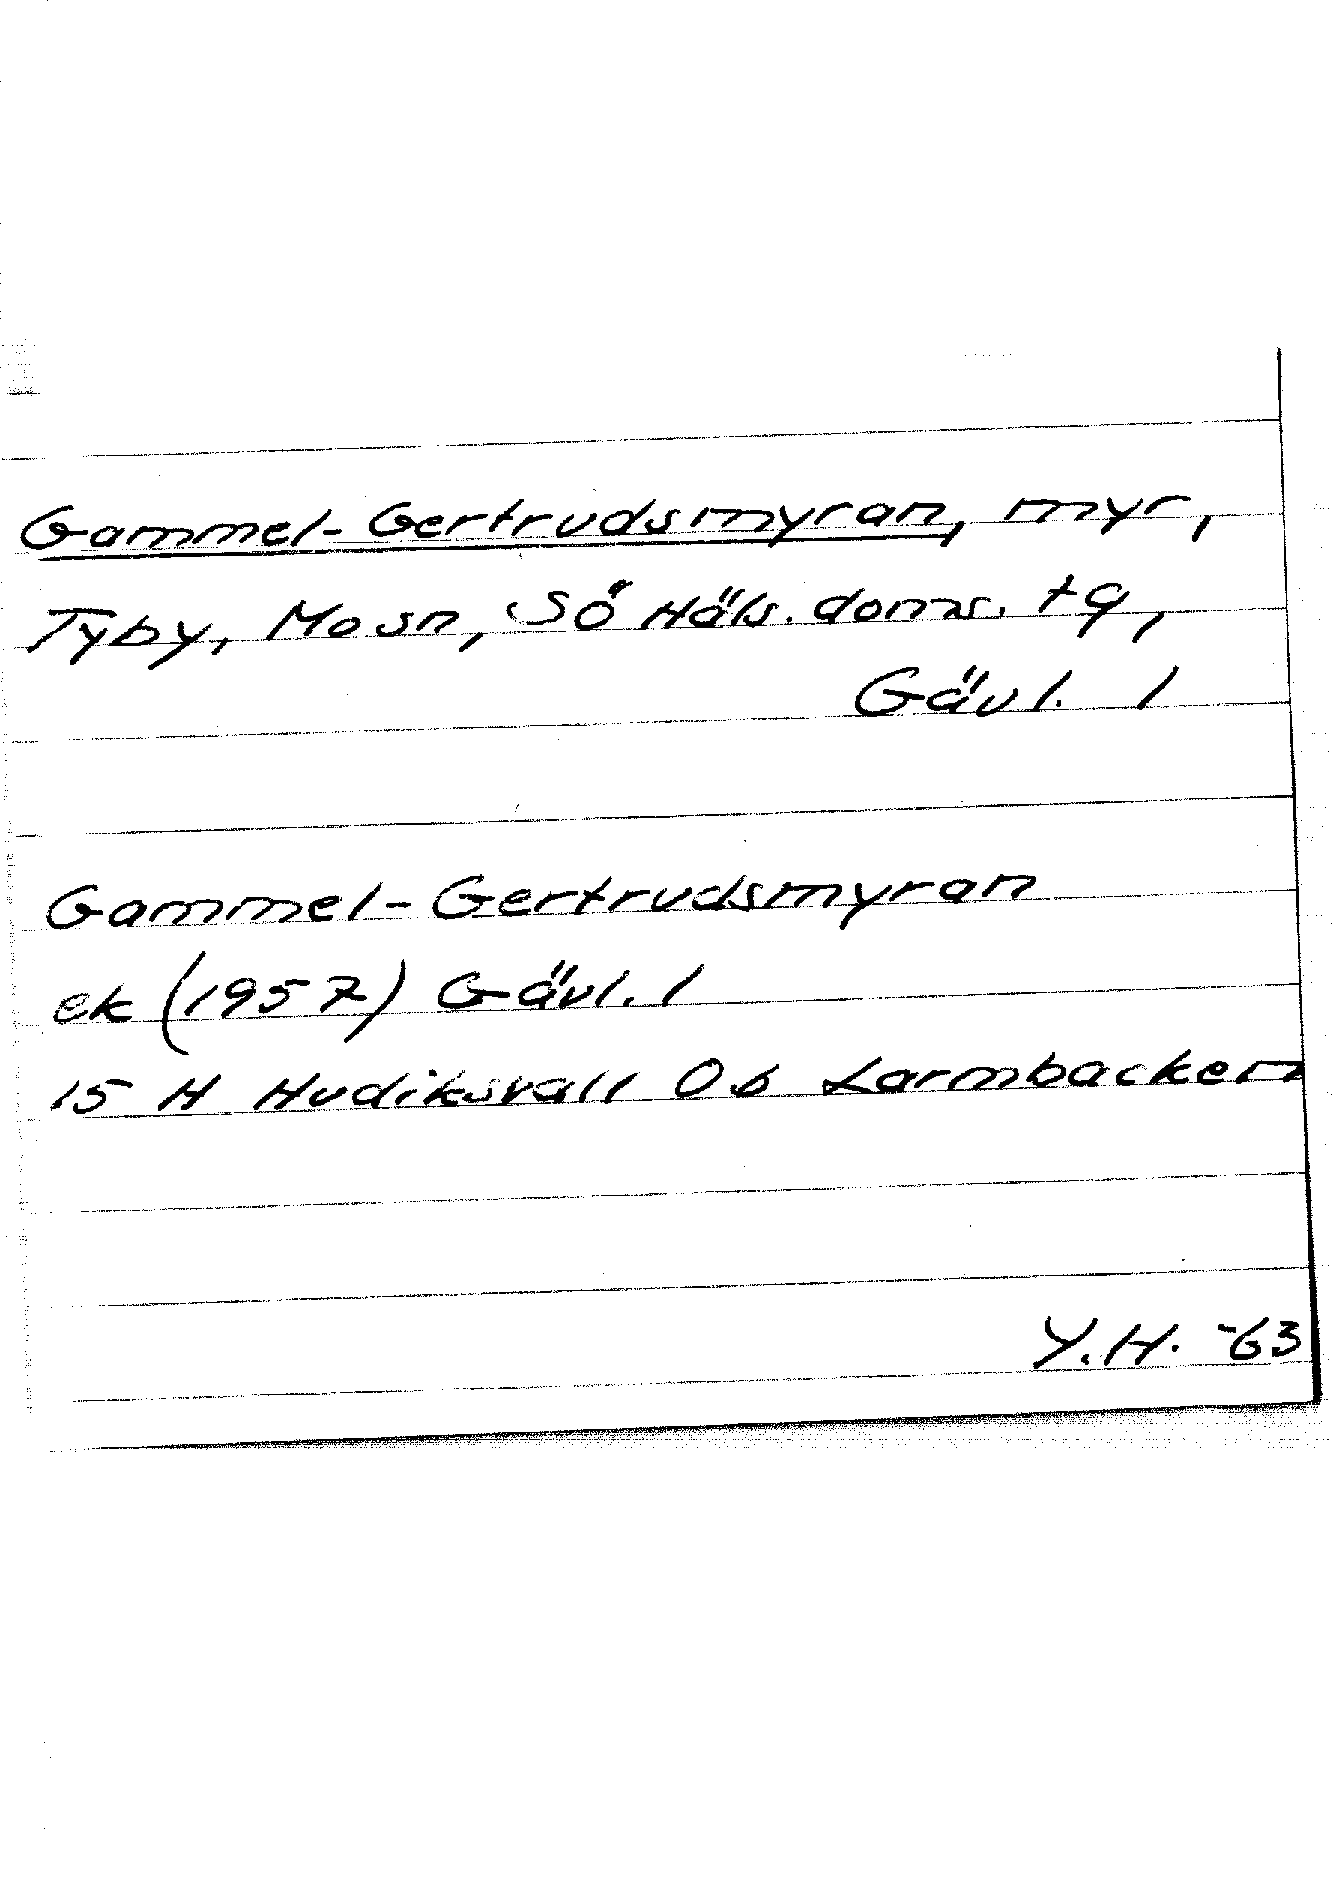 Gammel-Gertrudsmyran, myr,
Tyby, Mo sn, Sö Häls. doms. tg,
Gävl. l
Gammel-Gertrudsmyran
ek (1957) Gävl. l
15 H Hudiksvall 0 b Larmbacken
Y.H. -63